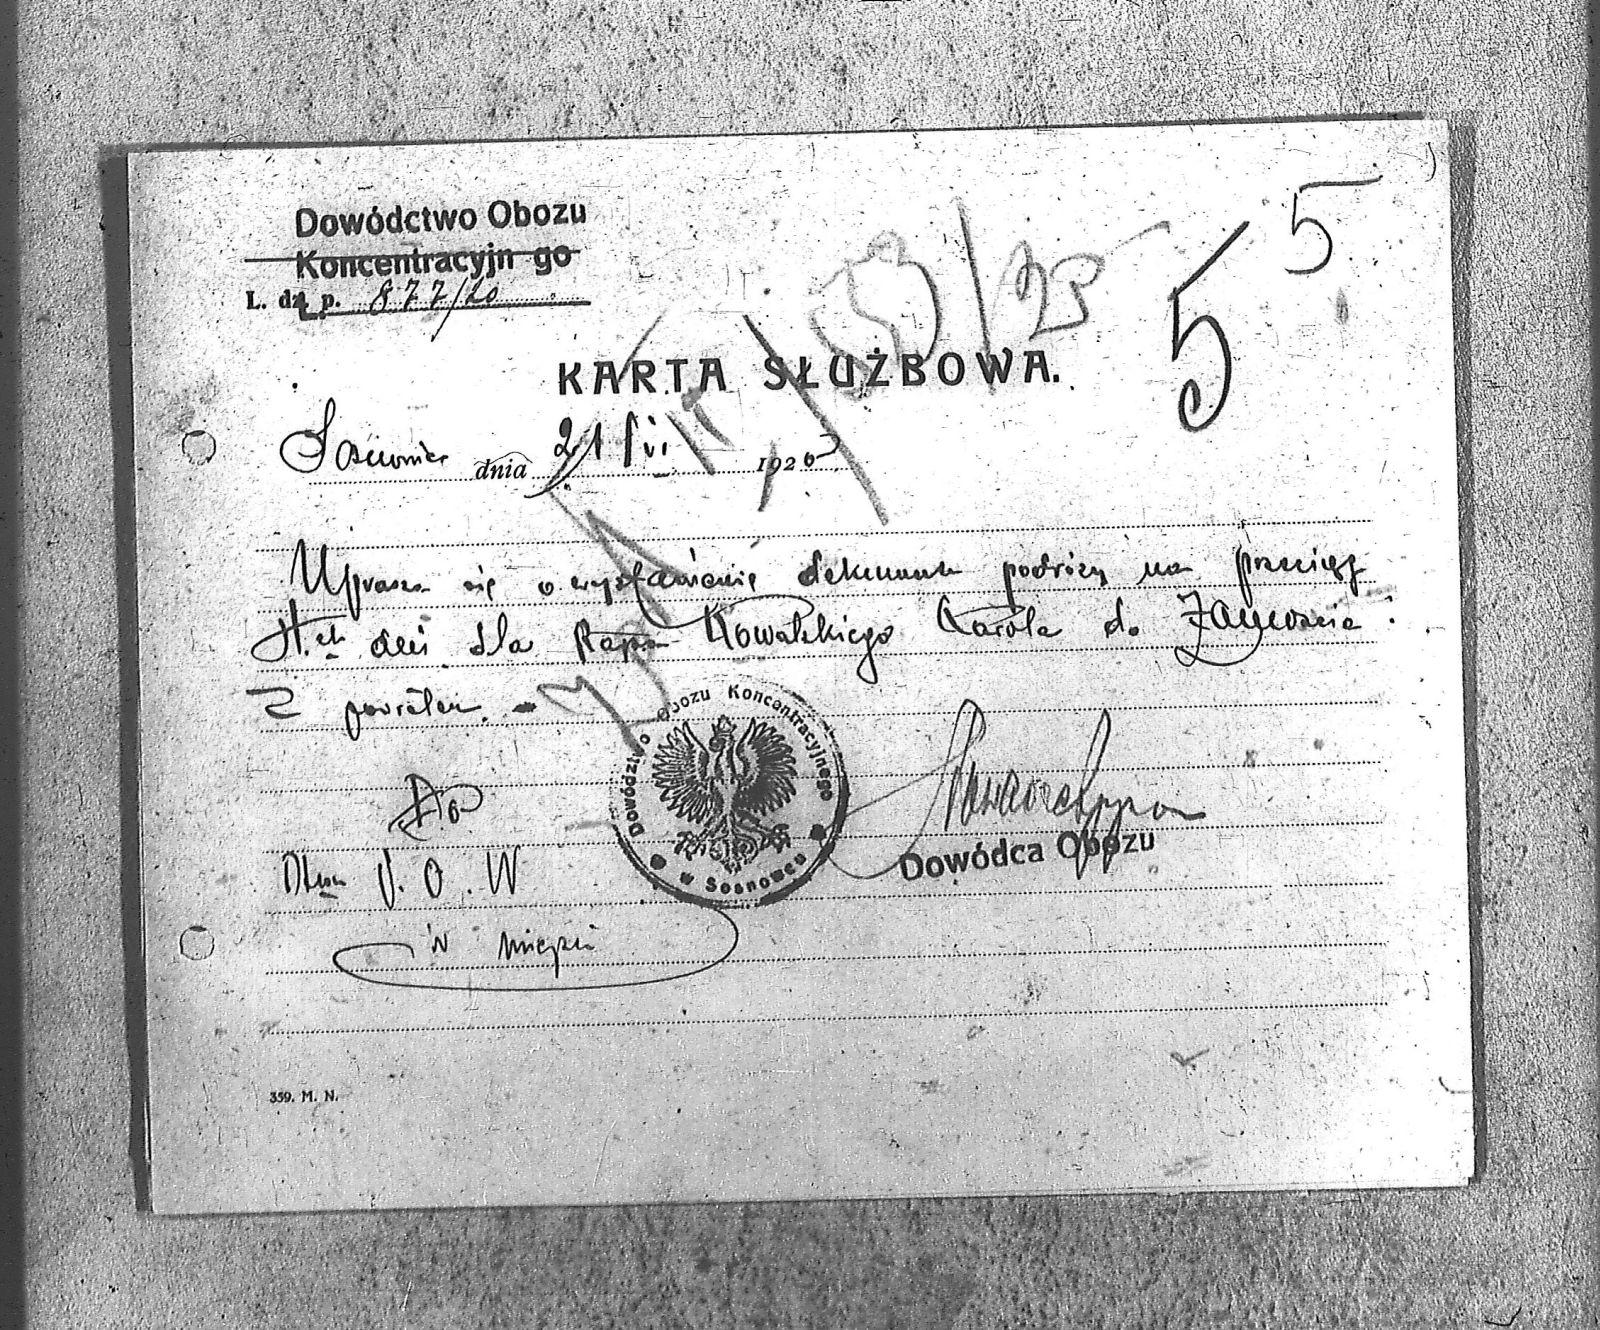 5
Dowódctwo Obozu
Koncentracyjn go
L. dz. p. 877/20
5
KARTA SŁUŻBOWA.
Sosnowiec dnia 21/VI 1920
Uprasza się o wystawienie dokumentu podróży na przeciąg
dni dla Kowalskiego Karola do Zamościa
z powrotem. -
Dowództwo Obozu Koncentracyjnego
w Sosnowcu
Do
Dtwa P. O. W
Dowódca Obozu
w miejscu
359. M. N.